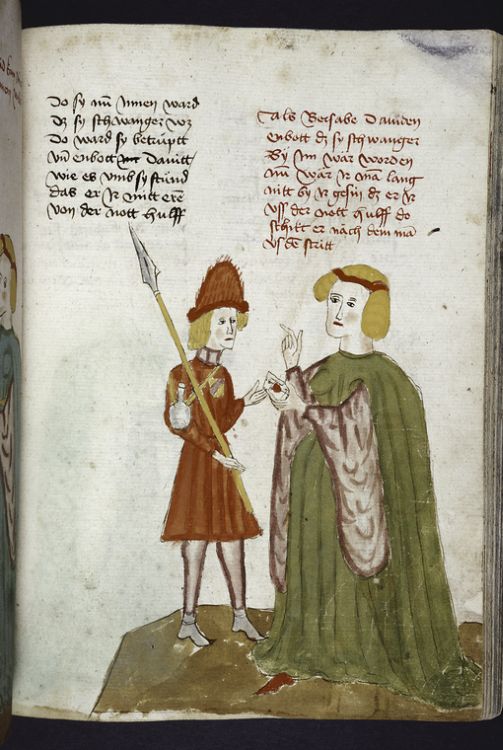 Do sy nu̅ Innen ward
dz sy schwanger wz
Do ward sy betrüptt
vn̅ enbott Dauitt
wie es vmb sy stünd
das er Ir mitt eren
von der nott hulff
Als Bersabe Dauiden
enbott dz sy schwanger
By Im war worden
nu̅ was Ir ma̅ lang
nitt by Ir gesin dz er Ir
vss der nott hulff do
schikt er nach dem ma̅
vs de̅ stritt